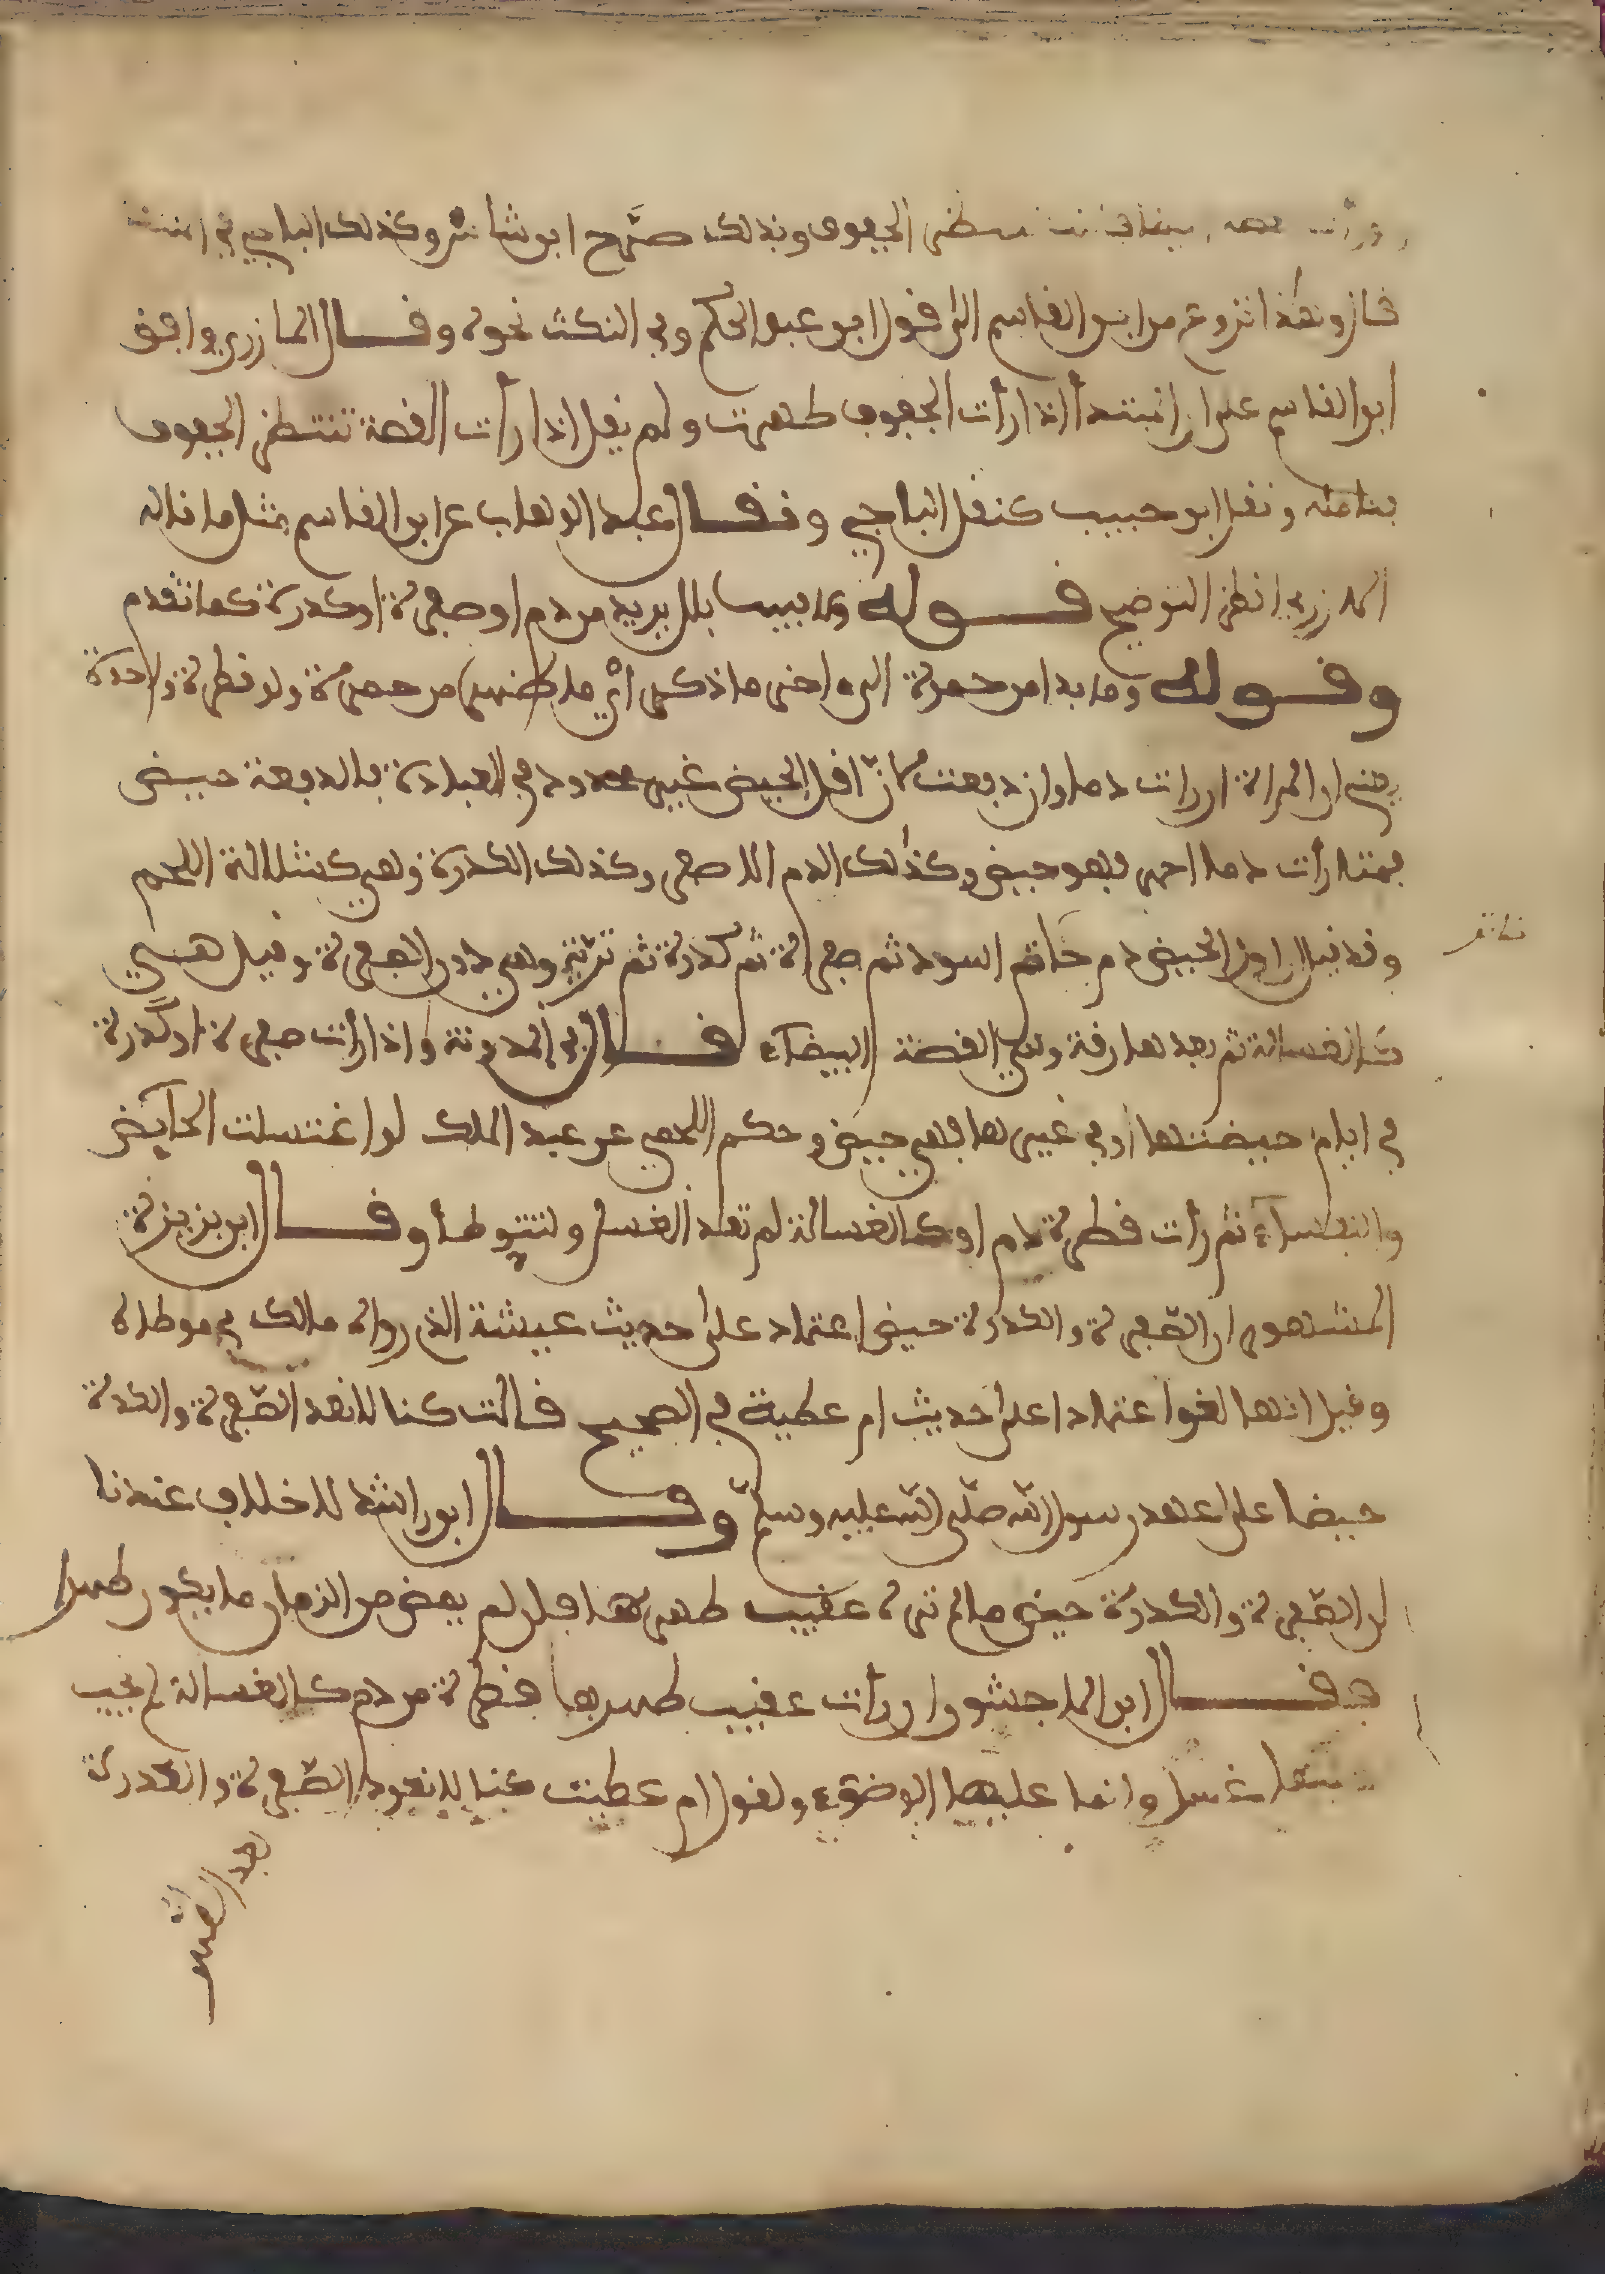 تنتظر الجفوف وبذلك صرّح ابن شاس وكذلك الباجي في
قال وهذا نزوع من ابن القاسم الى قول ابن عبد الحكم وفي النكت نحوه وقال المازري وافق
ابن القاسم على ان المبتدأة اذا رأت الجفوف طهرت ولم يقل اذا رأت القصة تنتظر الجفوف
فتامله ونقل ابن حبيب كنقل الباجي ونقل عبد الوهاب عن ابن القاسم مثل ما قاله
المازري انظر التوضيح قوله وما بيبسا بلل يريد من دم او صفرة او كدرة كما تقدم
وقوله وما بدا من حمرة الى اخر ما ذكر أي ما ظهر من حمرة ولو قطرة واحدة
يعني ان المراة ان رات دما وان دفعت لان اقل الحيض غير محدود في العبادة فالدفعة حيض
فمتى رأت دما احمر فهو حيض وكذلك الدم الاصفر وكذلك الكدرة وهي كمثل الة اللحم
وقد قيل ان اول الحيض دم خاثر اسود ثم صفرة ثم كدرة ثم ترية وهي دون الصفرة وقيل هي
كالغسالة ثم بعدها رقة وهي القصة البيضاء قال في المدونة واذا رأت صفرة او كدرة
في ايام حيضتها او في غيرها فهي حيض وحكم اللخمي عن عبد الملك لو اغتسلت الحايض
والنفساء ثم رأت قطرة دم او كالغسالة لم تعد الغسل ولتتوضأ وقال ابن بزيزة
المشهور ان الصفرة والكدرة حيض اعتماد على حديث عيشة الذي رواه مالك في موطاه
وقيل انها لغو اعتمادا على حديث ام عطية في الصحيح قالت كنا لا نعد الصفرة والكدرة
حيضا على عهد رسول الله صلى الله عليه وسلم وقال ابن راشد لا خلاف عندنا
ان الصفرة والكدرة حيض ما لم تره عقيب طهرها فان لم يمض من الزمان ما يكون طهرا
فقال ابن الماجشون ان رأت عقيب طهرها قطرة من دم كالغسالة لم يجب
غسل وانما عليها الوضوء ولقول ام عطيت كنا لا نعد الصفرة والكدرة
بعد الغسل